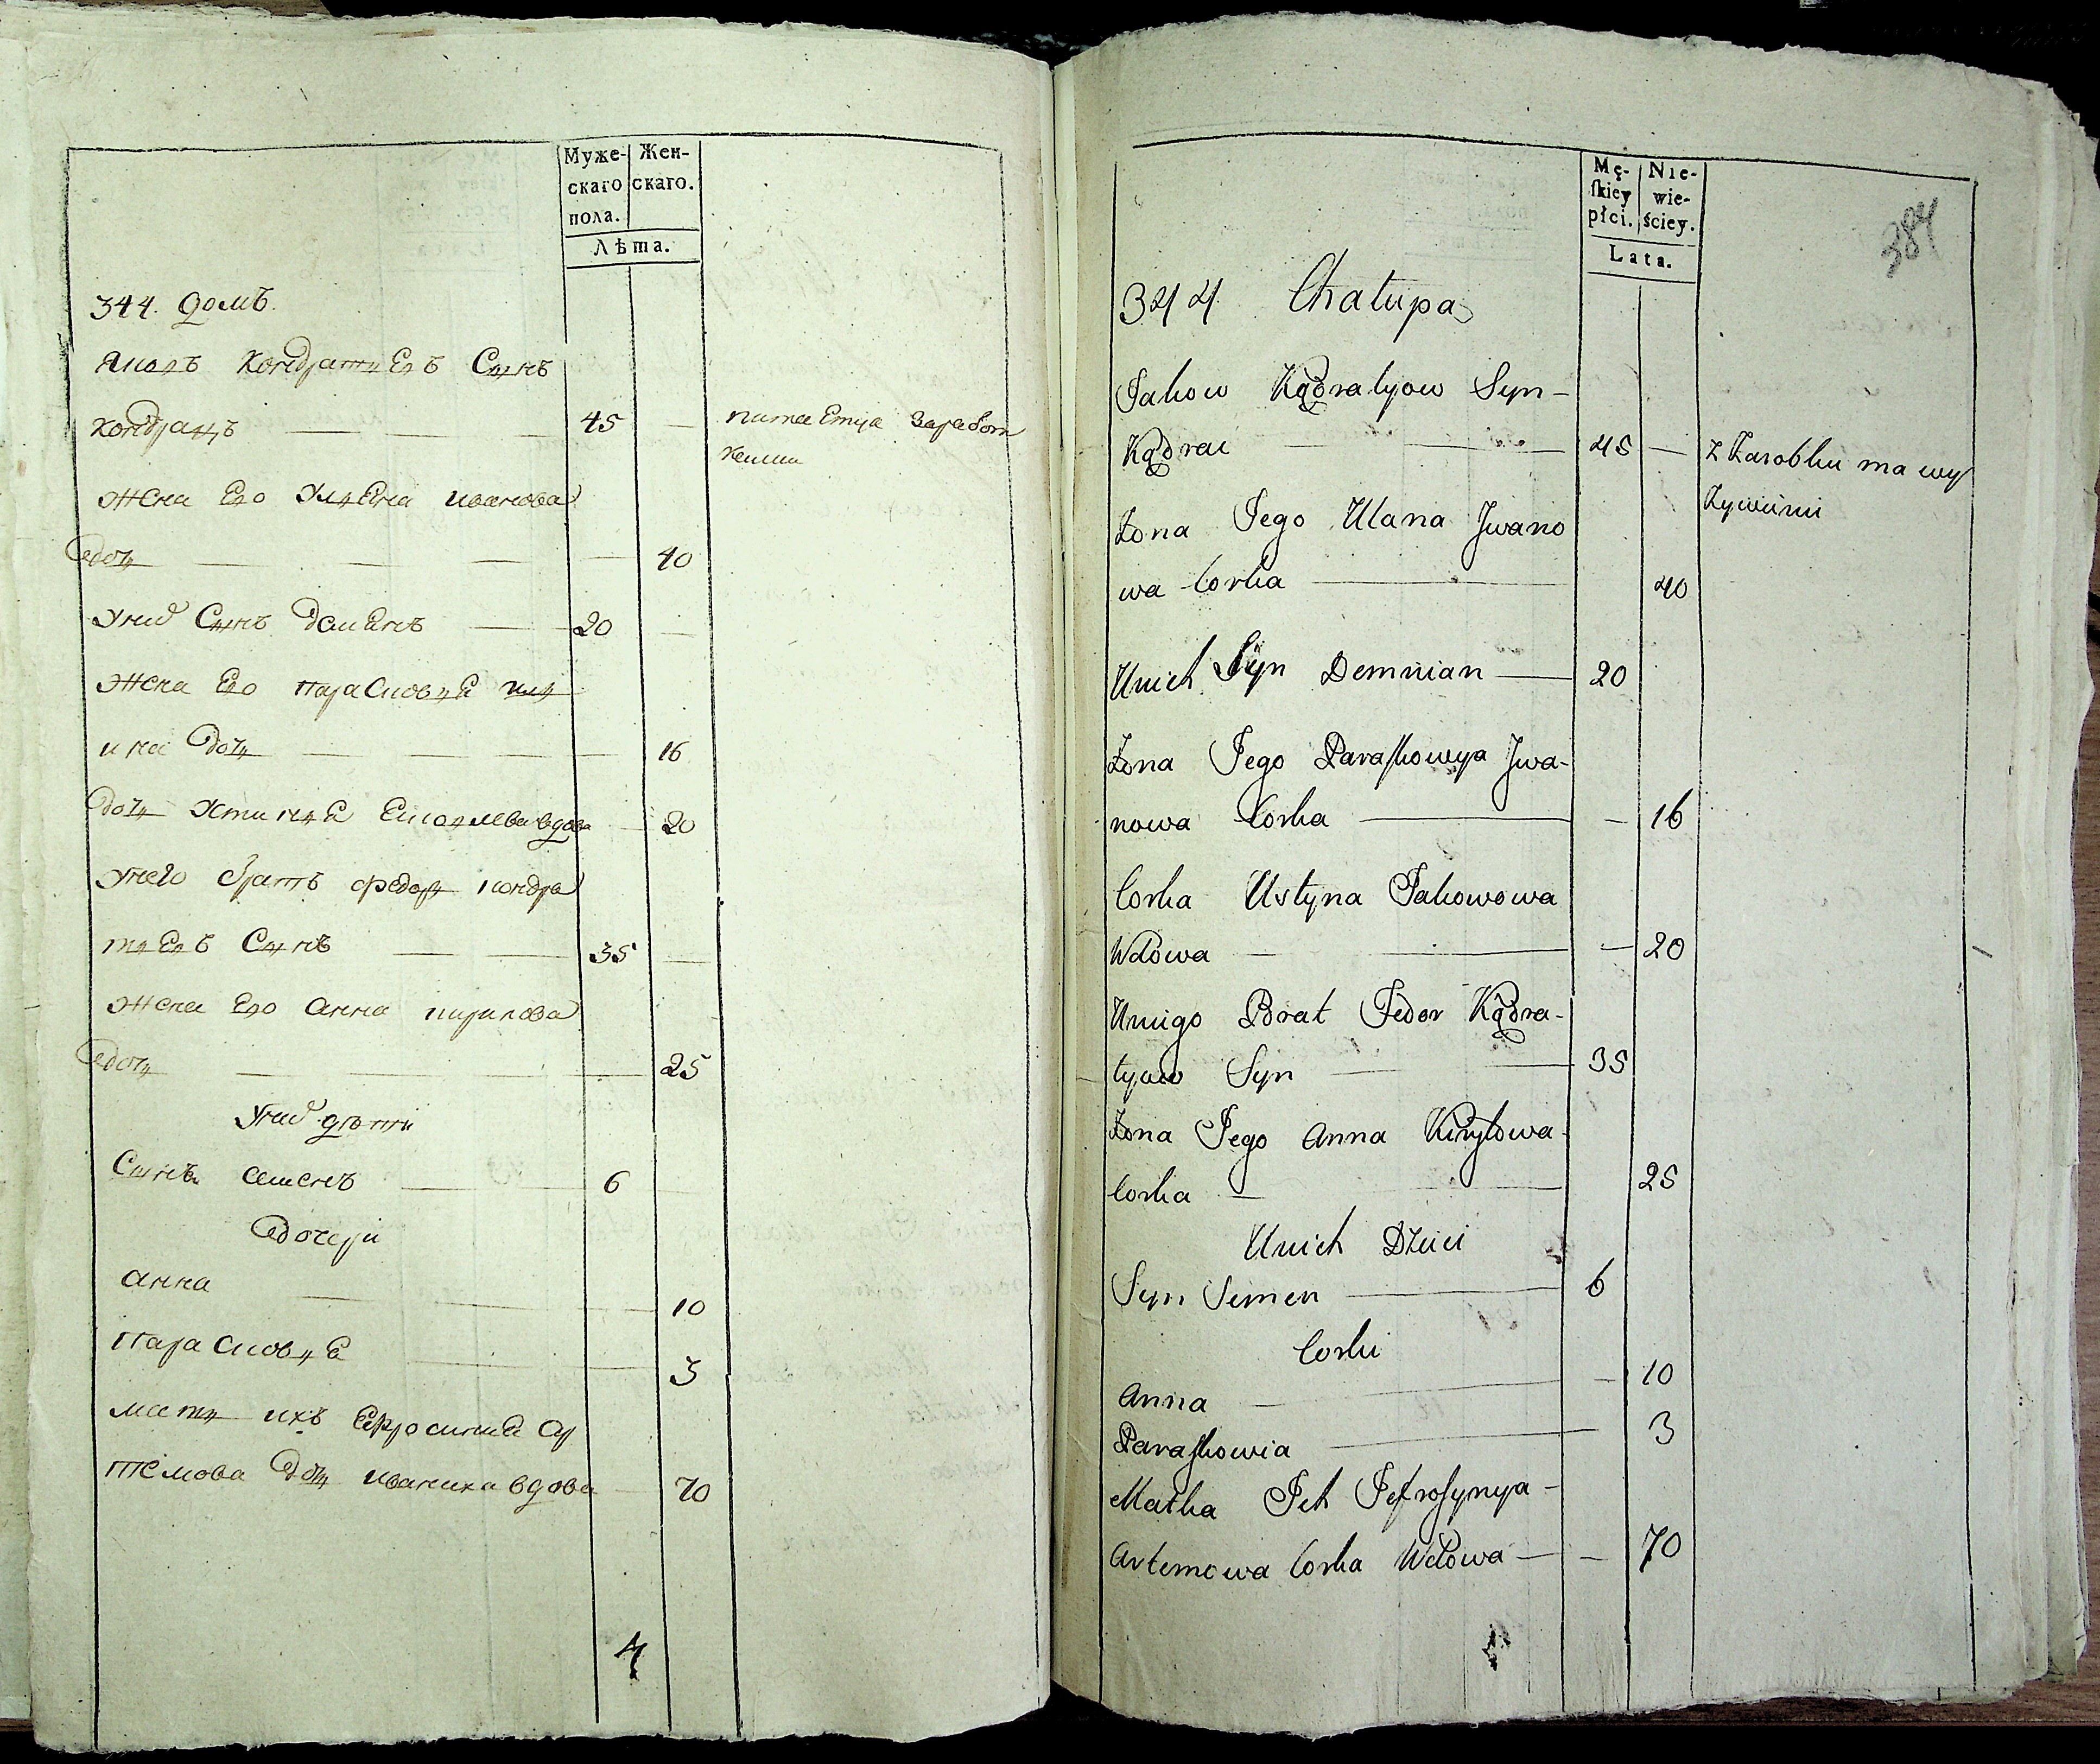 Муже-
скаго
пола.
Жен-
скаго.
Лѣта.
344. домъ.
Яковъ Кондратьевъ Сынъ
Кондрацъ 45 — питаетца заработ
ками
жена Его Ульена иванова
дочь — 40
Уних Сынъ дамьенъ 20 —
жена Его параСковья
ина дочь — 16
дочь Устинья Еков лева вдова — 20
Унего братъ федоръ кондра
тьевъ Сынъ 35 —
жена Его анна кирилова
дочь — 25
Уних дѣти
Сынъ семенъ 6 —
дочери
анна — 10
параСковья — 3
мать ихъ Ефросинья ар
темова дочь иваниха вдова — 70
4
Mę-
ſkiey
płci.
Nie-
wie-
ściey.
Lata.
384
344 Chałupa
Jakow Kądratyow Syn-
Kądrat 45 — Z Zarobku ma wy
Zywienie
Zona Jego Ulana Jwano
wa Corka 40
Unich Syn Demnian 20
Zona Jego Paraſkowya Jwa-
nowa Corka — 16
Corka Ustyna Jakowowa
Wdowa — 20
Uniego Brat Fedor Kądra-
tyow Syn 35
Zona Jego Anna Kiryłowa
Corka — 25
Unich Dzieci
Syn Siemen 6
Corki
Anna — 10
Paraſkowia 3
Matka Jch Jefroſynya -
Artemowa Corka Wdowa — 70